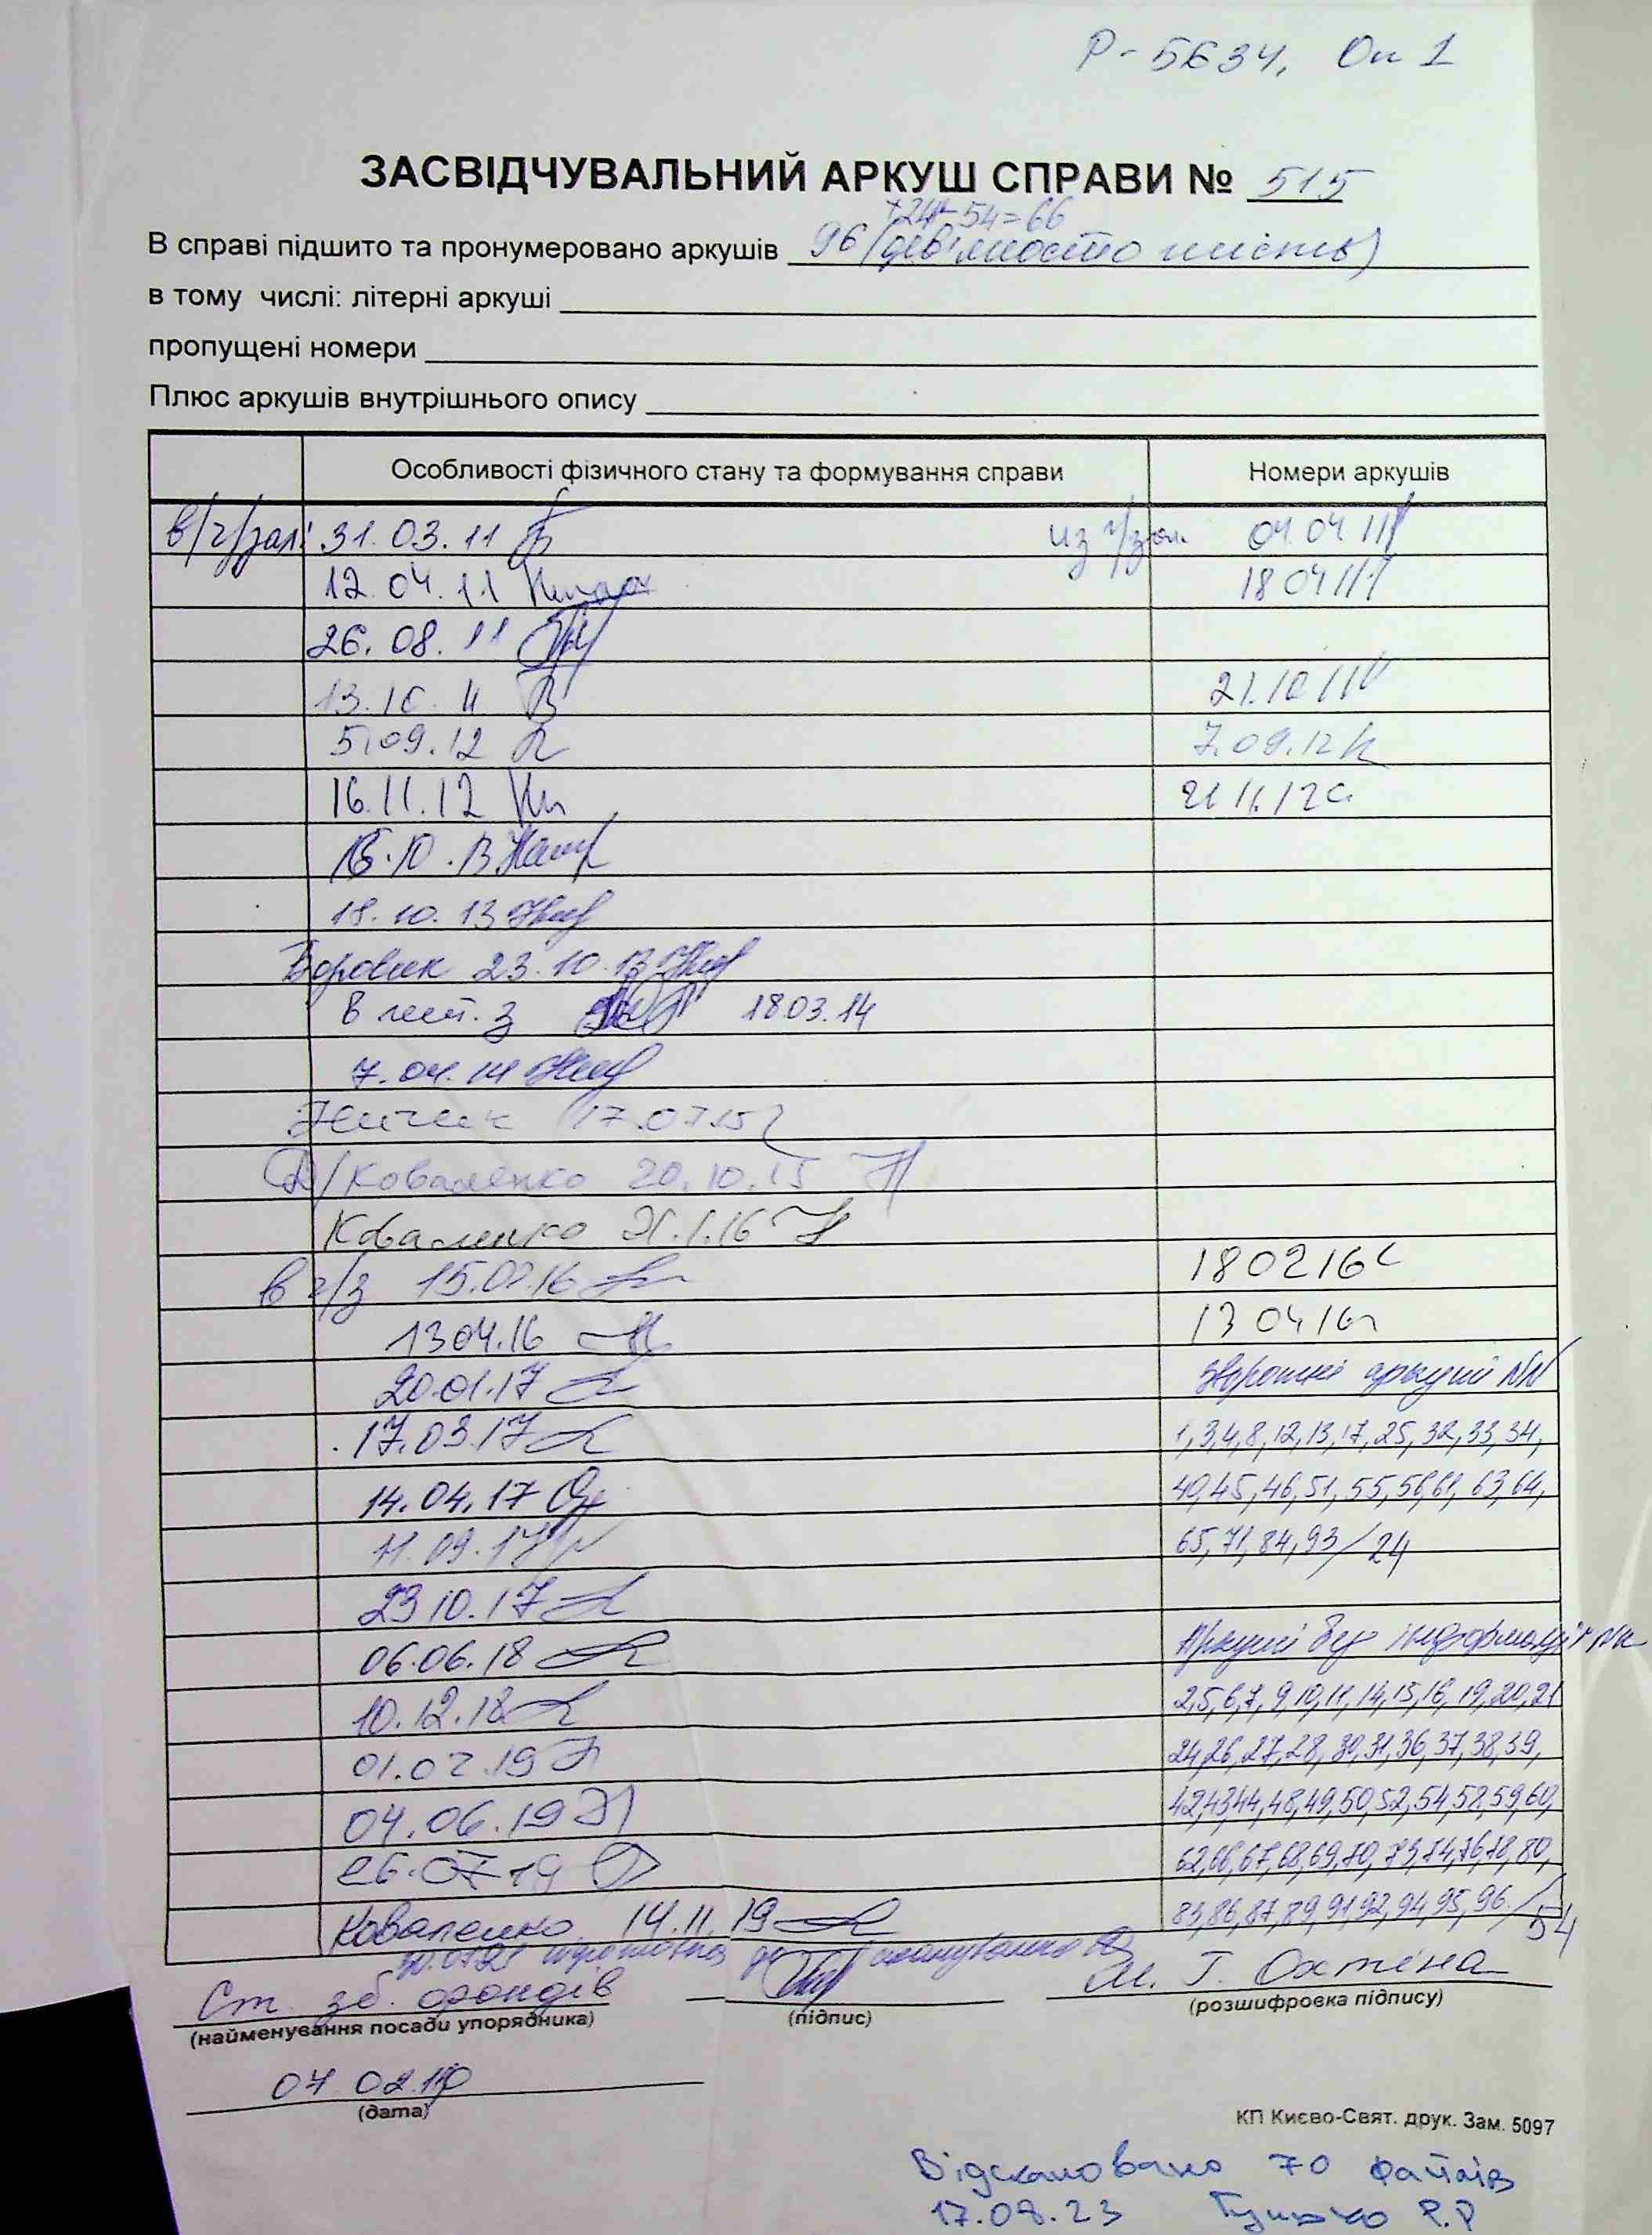 Р-5634, Оп 1
ЗАСВІДЧУВАЛЬНИЙ АРКУШ СПРАВИ № 515
+24-54=66
В справі підшито та пронумеровано аркушів 96 (дев'яносто шість)
в тому числі: літерні аркуші
пропущені номери
Плюс аркушів внутрішнього опису
Особливості фізичного стану та формування справи Номери аркушів
в/ч/зал: 31.03.11 из ч/зал. 04.04 11
12.04.11 18 04 11
26.08.11
13.10.11 21.10 11
5.09.12 7.09.12
16.11.12 21 11.12
10.13
18.10.13
Боровик 23.10.13
в чит. з 18.03.14
7.04.14
17.07.15
Коваленко 20.10.15
Коваленко 1.16
в ч/з 15.02.16 18 02 16
13 04.16 13 04 16
20.01.17 Зворотні аркуші №№
17.03.17 1,3,4,8,12,13,17,25,32,33,34,
14.04.17 40,45,46,51,55,56,61,63,64,
11.09.17 65,71,84,93/24
23 10.17
06.06.18 Аркуші без інформації №№
10.12.18 2,5,6,7,9,10,11,14,15,16,19,20,21
01.02.19 24,26,27,28,30,31,36,37,38,39,
04.06.19 42,43,44,48,49,50,52,54,58,59,60,
26.07 19 62,66,67,68,69,70,73,74,76,78,80,
Коваленко 14.11.19 83,86,87,89,91,92,94,95,96/54
сканування
Ст. зб. фондів М. Г. Охтіна
(найменування посади упорядника) (підпис) (розшифровка підпису)
04 02.10
(дата)
КП Києво-Свят. друк. Зам. 5097
Відскановано 70 файлів
17.08.23 Р.Р